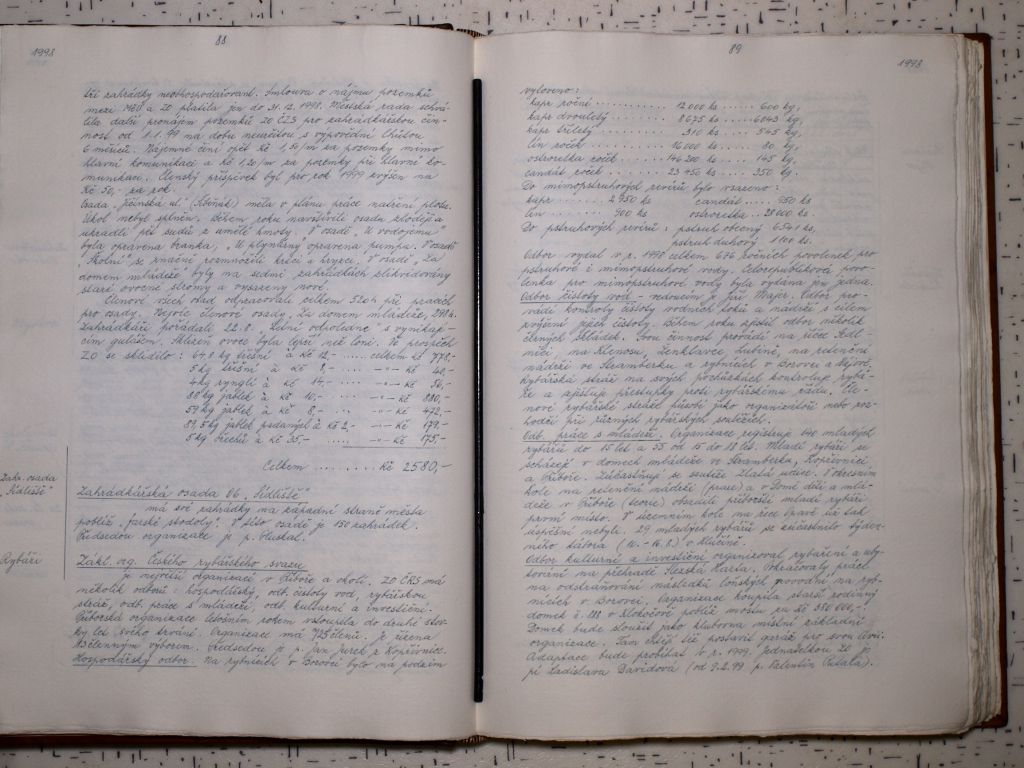 88
1998
tři zahrádky neobhospodařované. Smlouva o nájmu pozemků
mezi MěÚ a ZO platila jen do 31.12.1998. Městská rada schvá-
lila další pronájem pozemků ZO ČZS pro zahrádkářskou čin-
nost od 1.1.99 na dobu neurčitou s výpovědní lhůtou
6 měsíců. Nájemné činí opět Kč 1,50/m² za pozemky mimo
hlavní komunikaci a Kč 1,20/m² za pozemky při hlavní ko-
munikaci. Členský příspěvek byl pro rok 1999 zvýšen na
Kč 50,- za rok.
Osada Jičínská ul. (Šibeňák) měla v plánu práce natření plotu.
Úkol nebyl splněn. Během roku navštívili osadu zloději a
ukradli pět sudů z umělé hmoty. V osadě „U vodojemu"
byla opravena branka, „U plynárny" opravena pumpa. V osadě
„Školní" se značně rozmnožili krtci a hryzci. V osadě „Za
domem mládeže" byly na sedmi zahrádkách zlikvidovány
staré ovocné stromy a vysazeny nové.
Členové všech osad odpracovali celkem 520 h při pracích
pro osady. Nejvíce členové osady Za domem mládeže, 298 h.
Zahrádkáři pořádali 22.8. „Letní odpoledne" s vynikají-
cím gulášem. Sklizeň ovoce byla lepší než loni. Ve prospěch
ZO se sklidilo: 64,8 kg třešní à Kč 12,- ...... celkem Kč 778,-
5 kg třešní à Kč 8,- .... -"- Kč 40,-
4 kg rynglí à Kč 14,- .... -"- Kč 56,-
88 kg jablek à Kč 10,- .... -"- Kč 880,-
59 kg jablek à Kč 8,- .... -"- Kč 472,-
89,5 kg jablek padaných à Kč 2,- .. -"- Kč 179,-
5 kg ořechů à Kč 35,- ..... -"- Kč 175,-
Celkem .......... Kč 2580,-
Zahr. osada
„Sídliště"
Zahrádkářská osada 06 „Sídliště"
má své zahrádky na západní straně města
poblíž „farské stodoly". V této osadě je 150 zahrádek.
Předsedou organizace je p. Huskal.
Rybáři
Zákl. org. Českého rybářského svazu
je největší organizací v Příboře a okolí. ZO ČRS má
několik odborů: hospodářský, odb. čistoty vod, rybářskou
stráž, odb. práce s mládeží, odb. kulturní a investiční.
Příborská organizace letošním rokem vstoupila do druhé stov-
ky let svého trvání. Organizace má členů. Je řízena
členným výborem. Předsedou je p. Jan Jurek z Kopřivnice.
Hospodářský odbor. Na rybnících v Borovci bylo na podzim
89
1998
vyloveno:
kapr roční ........... 12 000 ks ..... 600 kg,
kapr dvouletý ........ 8 675 ks ..... 6043 kg,
kapr tříletý ......... 310 ks ..... 545 kg,
lín roček ............ 16 000 ks ..... 80 kg,
ostroretka roček ..... 146 200 ks .... 145 kg,
candát roček ......... 23 450 ks .... 350 kg.
Do mimopstruhových revírů bylo vsazeno:
kapr ........ 2 950 ks candát ..... 950 ks
lín ......... 900 ks ostroretka .. 25 000 ks.
Do pstruhových revírů: pstruh obecný 6 541 ks,
pstruh duhový 1 100 ks.
Odbor vydal v r. 1998 celkem 686 ročních povolenek pro
pstruhové i mimopstruhové vody. Celorepubliková povo-
lenka pro mimopstruhové vody byla vydána jen jedna.
Odbor čistoty vod - vedoucím je Jiří Majer. Odbor pro-
vádí kontroly čistoty vodních toků a nádrží s cílem
zvýšení jejich čistoty. Během roku zjistil odbor několik
černých skládek. Svou činnost provádí na řece Sedl-
nici, na Klenosu, Ženklavce, Lubině, na retenční
nádrži ve Štramberku a rybnících v Borovci a Hájově.
Rybářská stráž na svých pochůzkách kontroluje rybá-
ře a zjišťuje přestupky proti rybářskému řádu. Čle-
nové rybářské stráže působí jako organizátoři nebo roz-
hodčí při různých rybářských soutěžích.
Odb. práce s mládeží. Organizace registruje 140 mladých
rybářů do 15 let a 55 od 15 do 18 let. Mladí rybáři se
scházejí v domech mládeže ve Štramberku, Kopřivnici
a Příboře. Zúčastňují se soutěže Zlatá udice. V okresním
kole na retenční nádrži (praxe) a v Domě dětí a mlá-
deže v Příboře (teorie) obsadili příborští mladí rybáři
první místo. V územním kole na řece Opavě již tak
úspěšní nebyli. 29 mladých rybářů se zúčastnilo týden-
ního tábora (10.-16.8.) v Klučině.
Odbor kulturní a investiční organizoval rybaření a uby-
tování na přehradě Slezská Harta. Pokračovaly práce
na odstraňování následků loňských povodní na ryb-
nících v Borovci. Organizace koupila starý rodinný
domek č. 188 v Klokočově poblíž mostu za Kč 350 000,-.
Domek bude sloužit jako klubovna místní základní
organizace. Tam chtějí též postavit garáž pro svou Avii.
Adaptace bude probíhat v r. 1999. Jednatelkou ZO je
pí Ladislava Davidová (od 9.2.99 p. Valentin Putala).